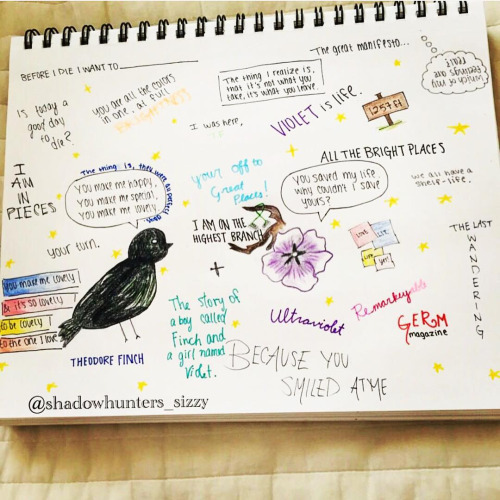 The great manifesto...
BEFORE I DIE I WANT TO
Which of my
feelings are
real?
Is today a
good day
to
die?
you are all the colors
in one, at full
brightness
The thing I realize is,
that it's not what you
take, it's what you leave.
I was here.
VIOLET is life.
1257 ft
ALL THE BRIGHT PLACES
I
AM
IN
PIECES
The thing is, they were all perfect days
You make me happy,
You make me special,
You make me lovely
your off to
Great
Places!
You saved my life
why couldn't I save
yours?
we all have a
shelf-life.
I AM ON THE
HIGHEST BRANCH
your turn.
THE LAST
WANDERING
you make me lovely
& it's so lovely
to be lovely
to the one I love
+
THEODORE FINCH
The story of
a boy called
Finch and
a girl named
Violet.
Ultraviolet
Remarkeyable
GERM
magazine
BECAUSE YOU
SMILED AT ME
@shadowhunters_sizzy